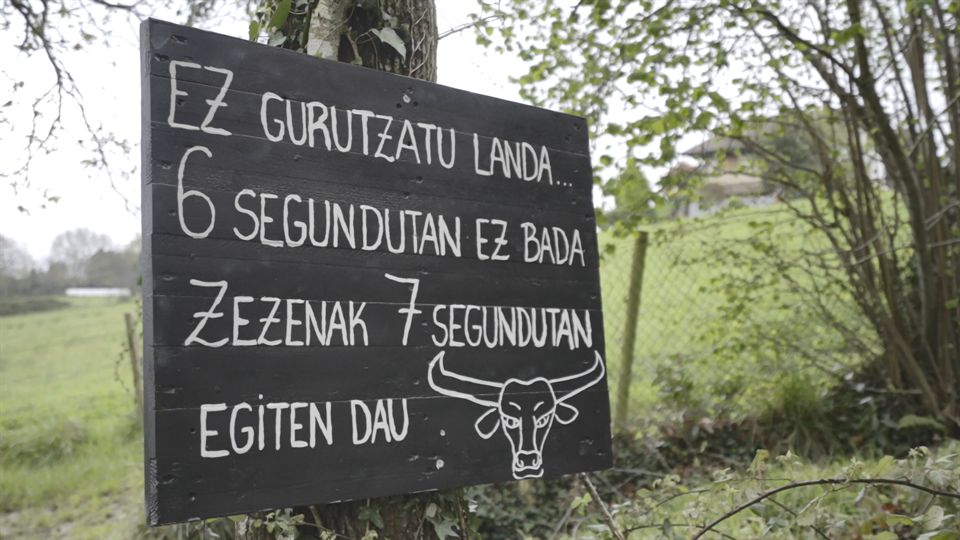 EZ GURUTZATU LANDA...
6 SEGUNDUTAN EZ BADA
ZEZENAK 7 SEGUNDUTAN
EGITEN DAU